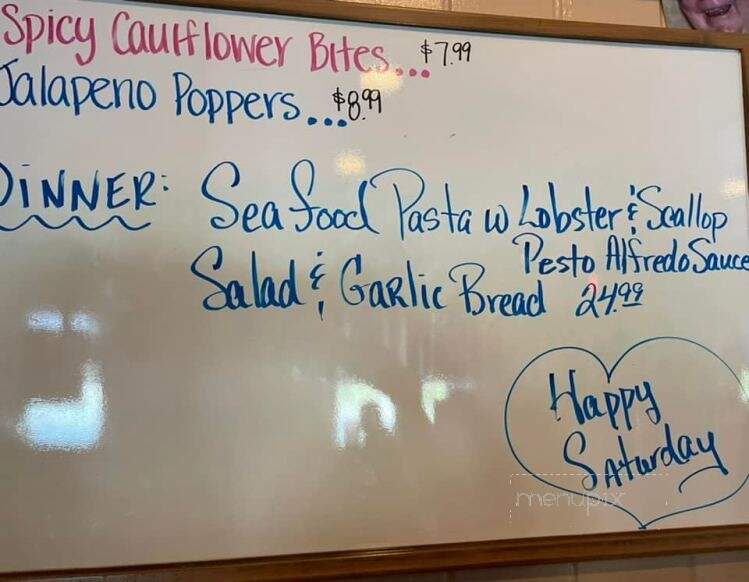 Spicy Cauliflower Bites... $7.99
Jalapeno Poppers... $8.99
DINNER: Seafood Pasta w Lobster & Scallop
Pesto Alfredo Sauce
Salad & Garlic Bread 24.99
Happy
Saturday
menupix